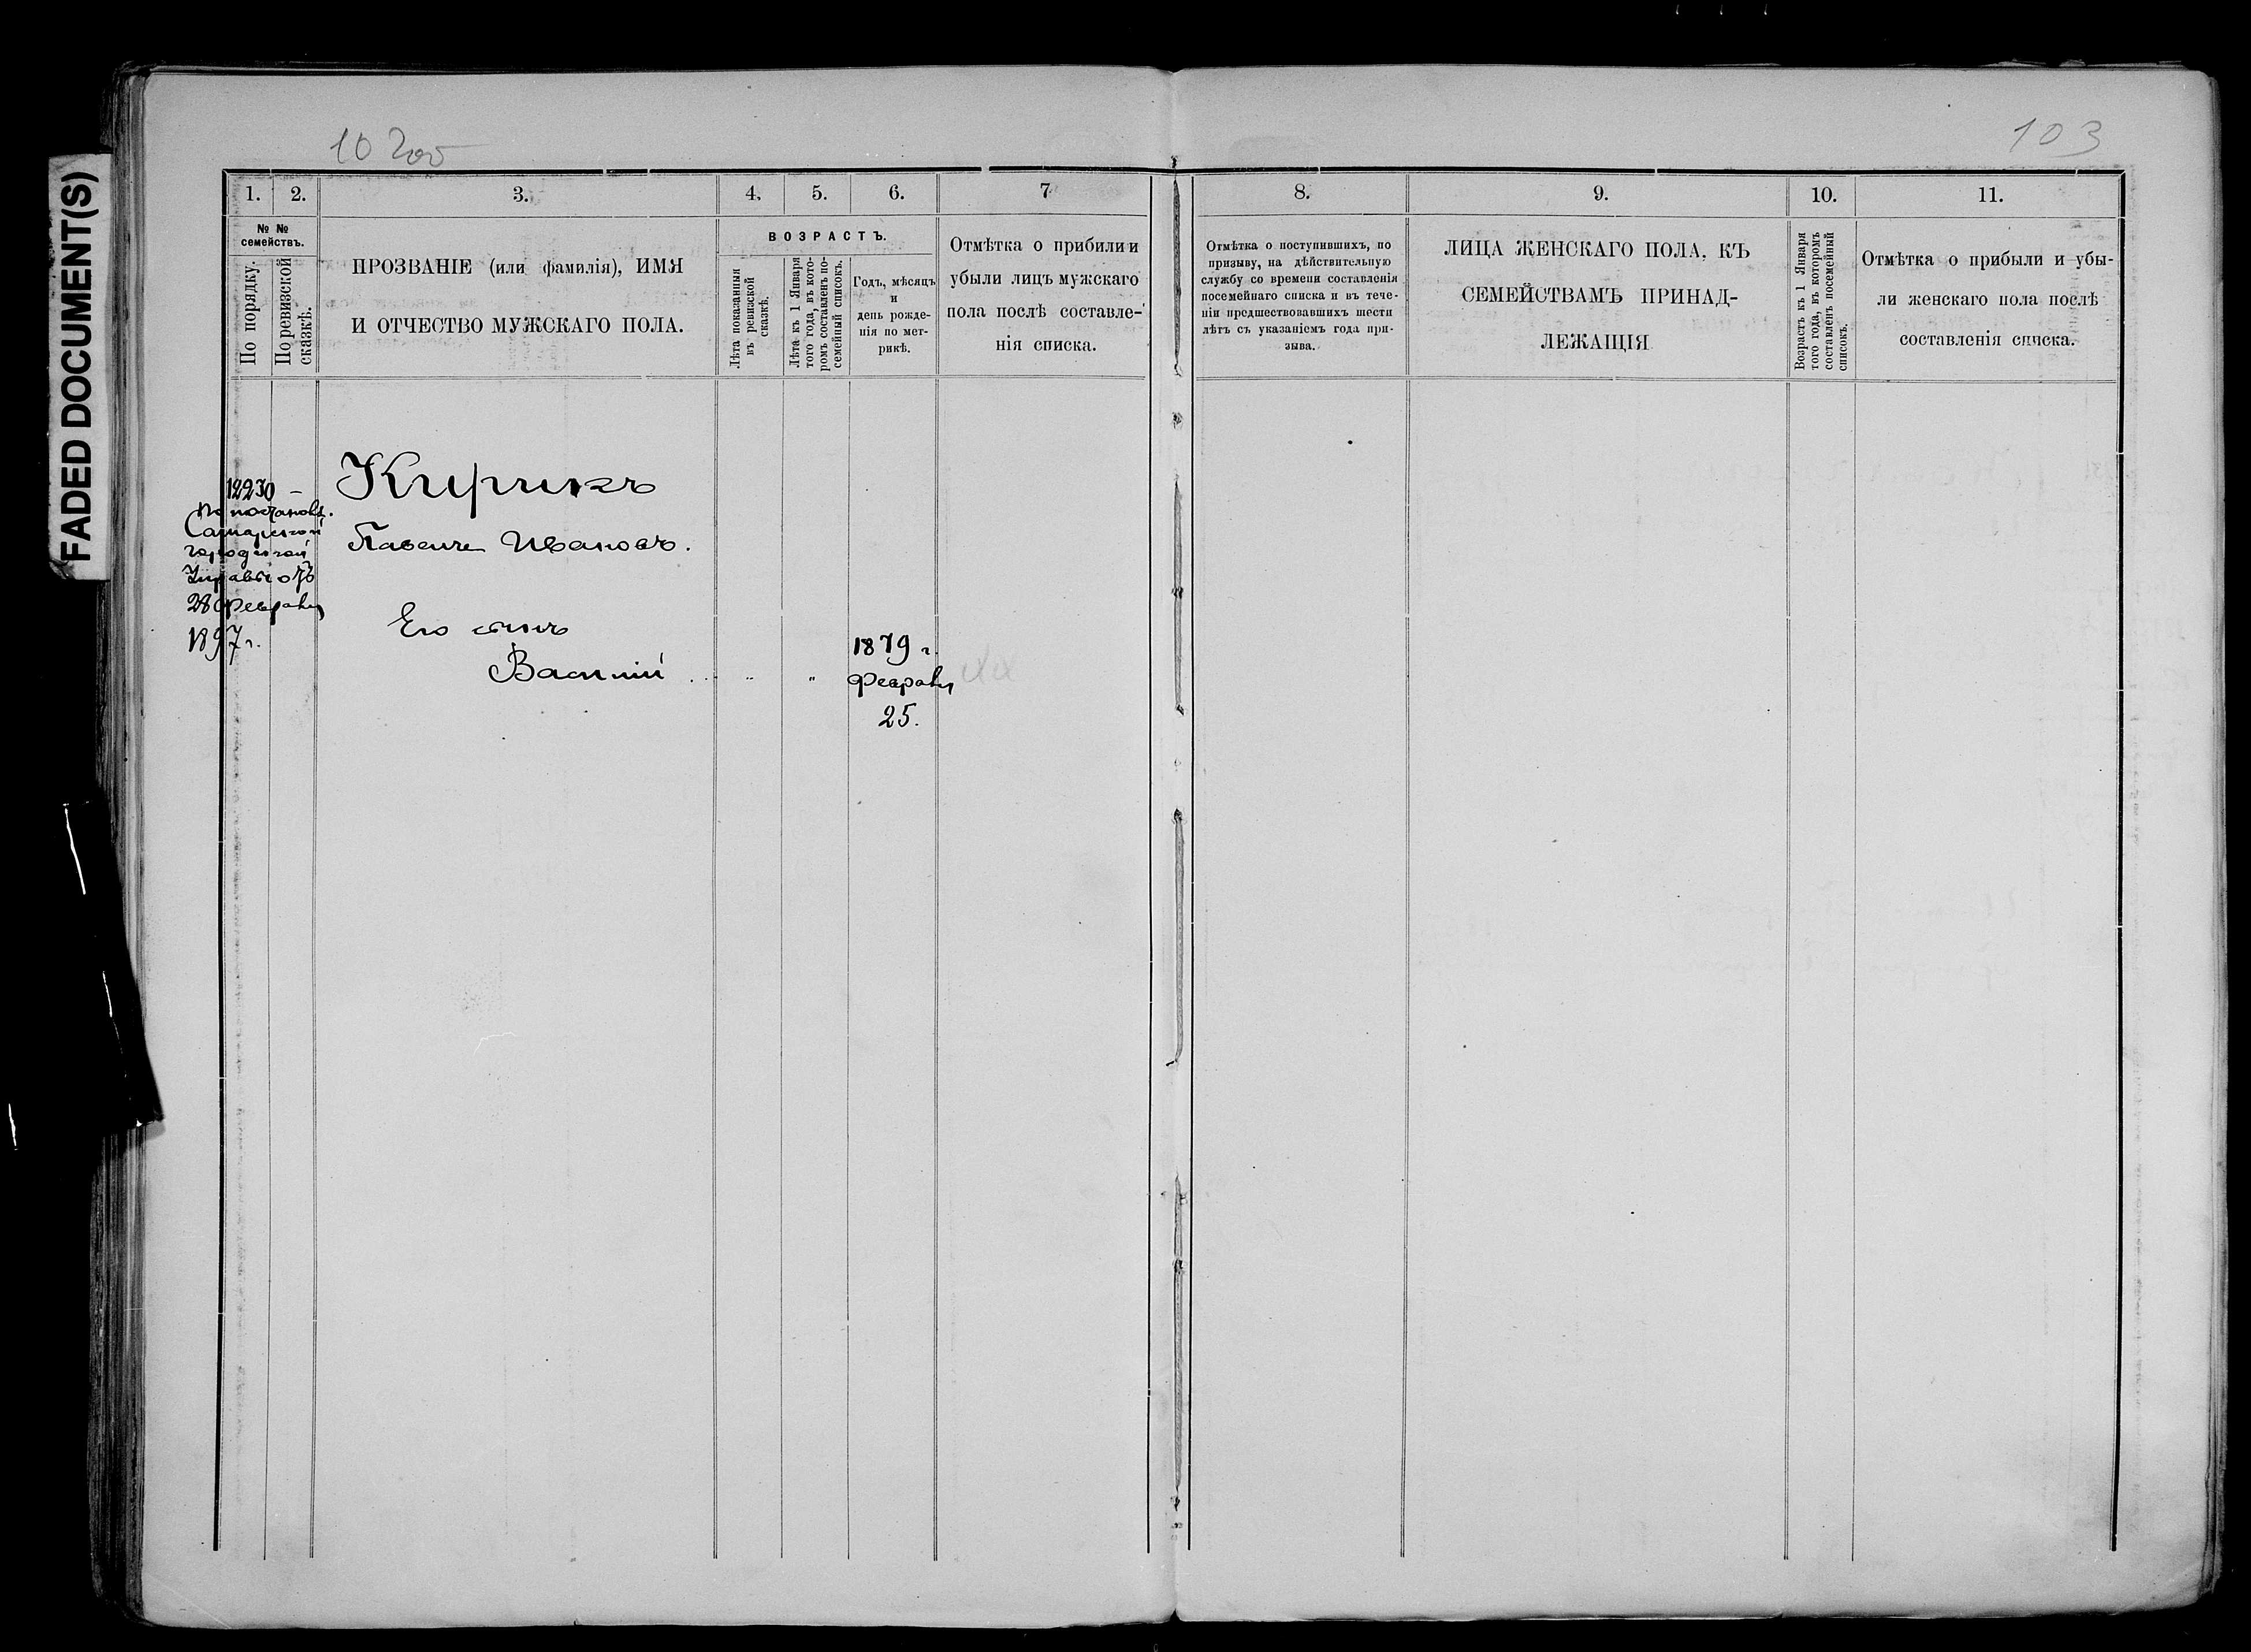 FADED DOCUMENT(S)
102об
103
1. 2. 3. 4. 5. 6. 7
8. 9. 10. 11.
№ №
семействъ.
По порядку.
По ревизской
сказкѣ.
ПРОЗВАНІЕ (или фамилія), ИМЯ
И ОТЧЕСТВО МУЖСКАГО ПОЛА.
ВОЗРАСТЪ.
Лѣта показанныя
въ ревизской
сказкѣ.
Лѣта къ 1 Января
того года, въ кото-
ромъ составленъ по-
семейный списокъ.
Годъ, мѣсяцъ
и
день рожде-
нія по мет-
рикѣ.
Отмѣтка о прибили и
убыли лицъ мужскаго
пола послѣ составле-
нія списка.
Отмѣтка о поступившихъ, по
призыву, на дѣйствительную
службу со времени составленія
посемейнаго списка и въ тече-
ніи предшествовавшихъ шести
лѣтъ съ указаніемъ года при-
зыва.
ЛИЦА ЖЕНСКАГО ПОЛА, КЪ
СЕМЕЙСТВАМЪ ПРИНАД-
ЛЕЖАЩІЯ
Возрастъ къ 1 Января
того года, въ которомъ
составленъ посемейный
списокъ.
Отмѣтка о прибыли и убы-
ли женскаго пола послѣ
составленія списка.
12230 —
По постановл.
Самарской
городской
Управы отъ
28 Февраля
1897 г.
Кирикъ
Павелъ Ивановъ.
Его сынъ
Василій . . „ „
1879 г.
Февраля
25.